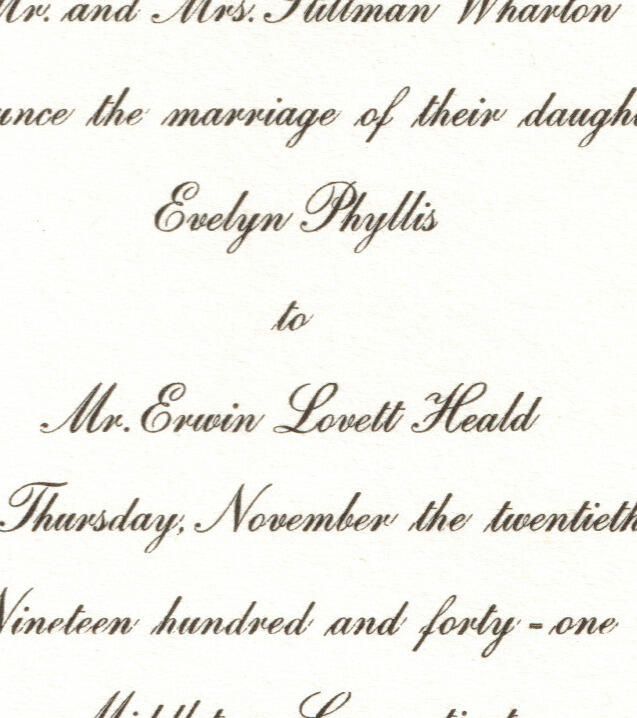 Mr. and Mrs. Stillman Wharton
unce the marriage of their daught
Evelyn Phyllis
to
Mr. Erwin Lovett Heald
Thursday, November the twentieth
Nineteen hundred and forty-one